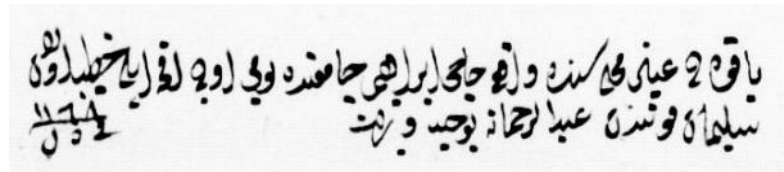 محله سنده واقع حاجی ابراهیم جامعنده یومی اوچ اقچه ایله خطیب اولان
سلیمان فوتندن عبدالرحمانه توجیه و برات ١١٦٨